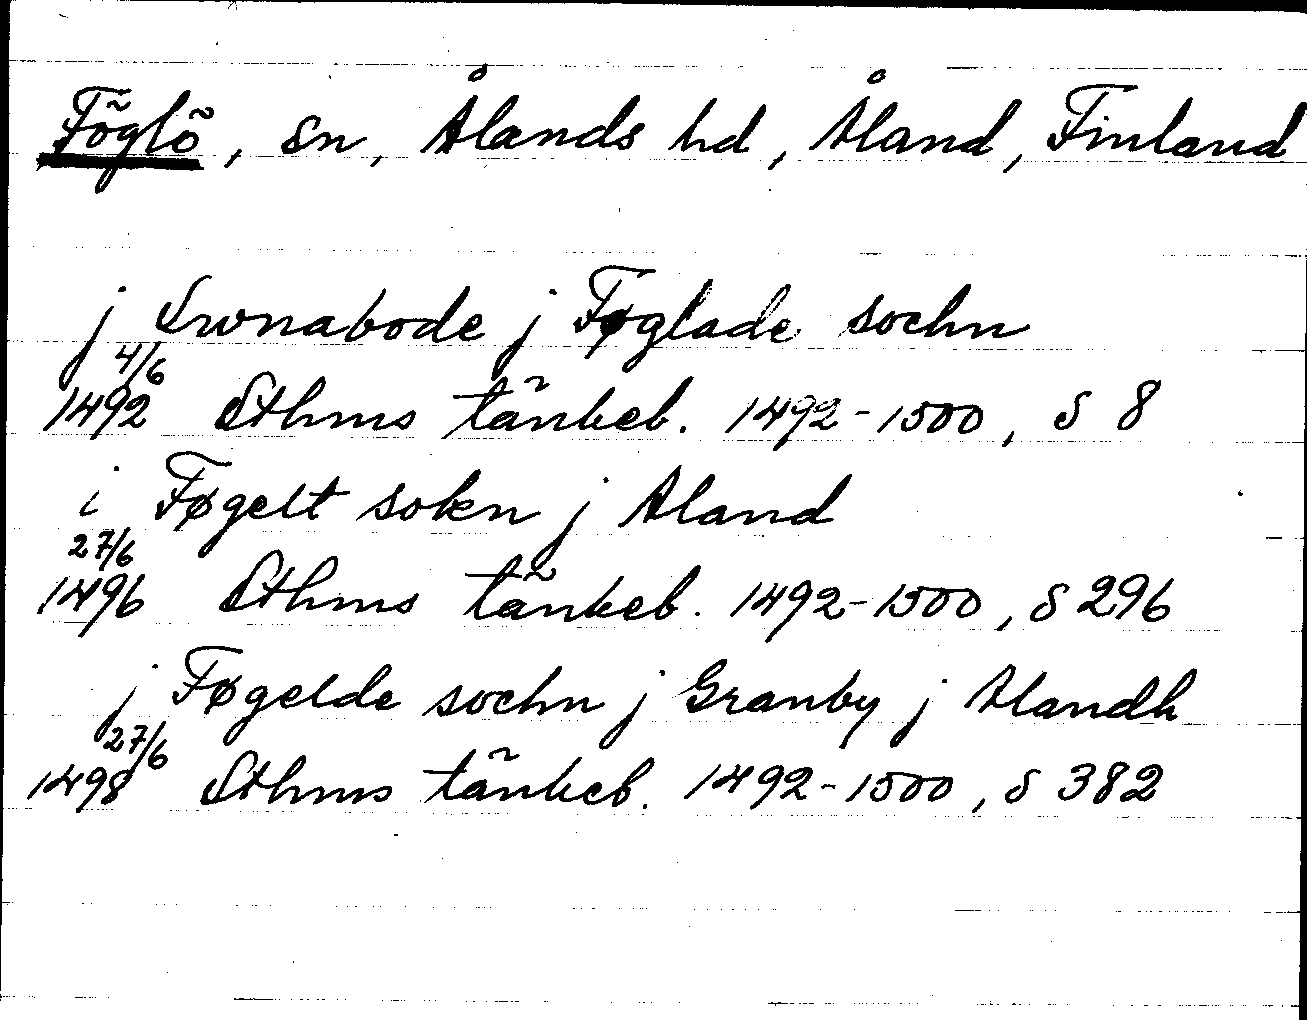 Föglö, Sn, Ålands hd, Åland, Finland
j Swnabode j Føglade sochn
4/6
1492 Sthms tänkeb. 1492-1500, S 8
i Føgelt sokn j Aland
27/6
1496 Sthms tänkeb. 1492-1500, S 296
j Føgelde sochn j Granby j Alandh
27/6
1498 Sthms tänkeb. 1492-1500, S 382